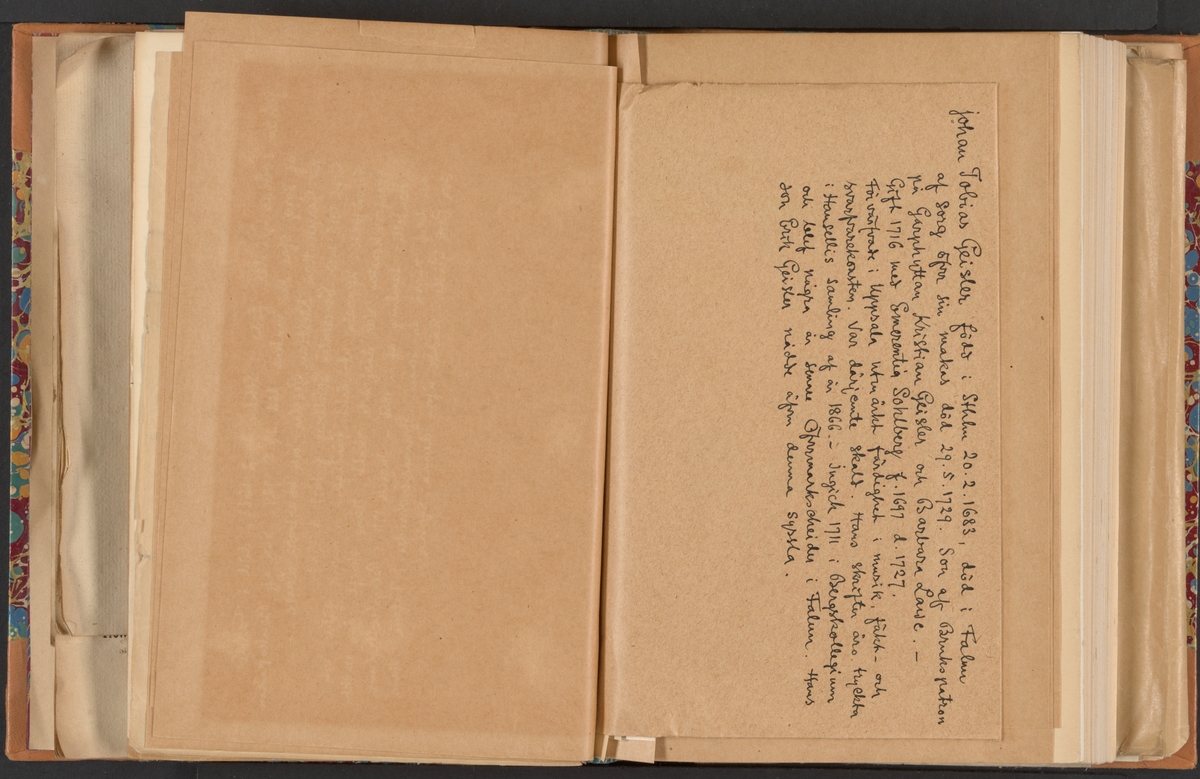 Johan Tobias Geisler född i Sthlm 20.2.1683, död i Falun
af sorg öfver sin makas död 29.5.1729. Son af Brukspatron
på Garphyttan Kristian Geisler och Barbara Laude. –
Gift 1716 med Emerentia Sohlberg f. 1697 d. 1727.
Förvärfvade i Uppsala utmärkt färdighet i musik, fäkt- och
svarfvarekonsten. Var därjemte skald. Hans skrifter äro tryckta
i Hansellis samling af år 1866. – Ingick 1711 i Bergskollegium
och blef några år senare Öfvermarkscheider i Falun. Hans
son Erik Geisler nådde äfven denna syssla.